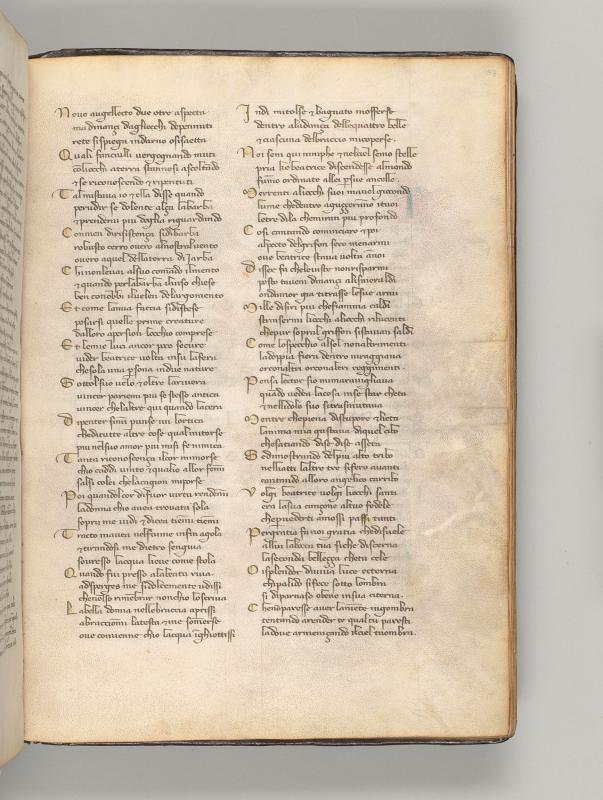 Novo augellecto due otre aspecta
madinança dagliocchi depennuti
rete sispiega indarno osisaetta
Quali fanciulli vergognando muti
cogliocchi aterra stannosi ascoltando
& se riconoscendo & ripentuti
Tal mistava io & ella disse quando
perudir se dolente alça labarba
& prenderai piu doglia riguardando
Con men diresistença sidibarba
robusto cerro overo alnostral vento
overo aquel dellaterra di Jarba
Chi nonlevai alsuo comãdo ilmento
& quando perlabarba ilviso chiese
ben conobbi ilvelen delargomento
Et come lamia faccia sidistese
posarsi quelle prime creature
dalloro apersion locchio comprese
Et lemie luci ancor poco secure
vider beatrice volta insu lafiera
chesola una psona indue nature
Sottol suo velo & oltre lariviera
vincer pariemi piu se stessa antica
vincer chelaltre qui quando lacera
Dipenter simi punse ivi lortica
cheditutte altre cose qual mitorse
piu nelsuo amor piu misi fe nimica
Tanta riconoscença ilcor mimorse
chio caddi vinto & qualio allor femi
salsi colei chelacagion miporse
Poi quandol cor difuor virtu rendemi
ladonna chio avea trovata sola
sopra me vidi & dicea tiemi tiemi
Tracto mavea nelfiume infin agola
& tirandosi me dietro sengiva
sovresso lacqua lieve come stola
Quando fui presso alabeata riva
adsperges me sidolcemente udissi
chenolso rimebrar nonchio loscriva
Labella donna nellebraccia aprissi
abracciomi latesta & me somerse
ove convenne chio lacqua ighiottissi
Indi mitolse & bagnato mofferse
dentro aladança dellequattro belle
& ciascuna delbraccio micoperse.
Noi sem qui nimphe & nelciel semo stelle
pria ke beatrice discendesse almondo
fumo ordinate allei p sue ancelle.
Merrenti aliocchi suoi manel giocondo
lume chedentro aguççeranno ituoi
letre dila chemiran piu profondo
Cosi cantando cominciaro & poi
alpecto delgrifon seco menarmi
ove beatrice stava volta anoi
Disser fa cheleviste nonrisparmi
posto tavem dinança alismeraldi
ondamor gia titrasse lesue armi
Mille disiri piu chefiamma caldi
strinsermi liocchi aliocchi rilucenti
chepur sopral griffon sistavan saldi
Come lospecchio alsol nonaltrimenti
ladoppia fiera dentro viraggiava
orconaltri orconaltri reggimenti.
Pensa lector sio mimaravigliava
quãdo vedea lacosa inse star cheta
& nellidolo suo sitrasmutava
Mentre chepiena distupore & lieta
lanima mia gustava diquel cibo
chesatiando dise dise asseta
Se dimostrando delpiu alto tribo
nelliatti laltre tre sifero avanti
cantando alloro angelico carribo
Volgi beatrice volgi liocchi santi
era lasua cançone altuo fedele
chepvederti amossi passi tanti
Pergratia fa noi gratia chedisvele
allui labocca tua siche discerna
lasecunda belleçça chetu cele
O isplendor diviva luce ecterna
chipalido sifece sotto lombra
si diparnaso obeve insua citerna.
Chenõparesse aver lamẽte ingombra
tentando arender te qual tu paresti
ladove armoniçando ilciel tnombra.